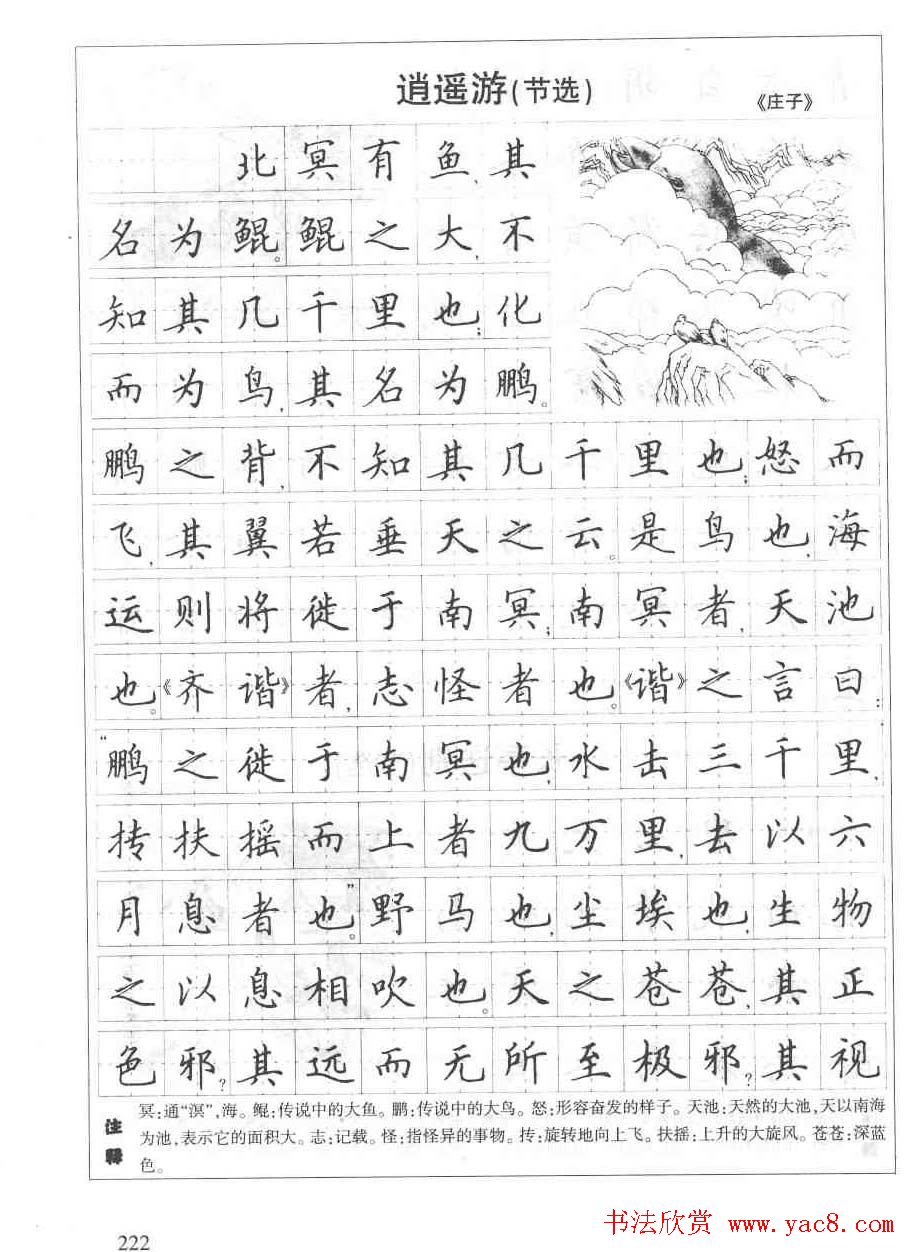 逍遥游(节选)
《庄子》
北冥有鱼,其
名为鲲。鲲之大,不
知其几千里也;化
而为鸟,其名为鹏。
鹏之背,不知其几千里也;怒而
飞,其翼若垂天之云。是鸟也,海
运则将徙于南冥;南冥者,天池
也。《齐谐》者,志怪者也。《谐》之言曰:
“鹏之徙于南冥也,水击三千里,
抟扶摇而上者九万里,去以六
月息者也。”野马也,尘埃也,生物
之以息相吹也。天之苍苍,其正
色邪?其远而无所至极邪?其视
注释
冥:通“溟”,海。鲲:传说中的大鱼。鹏:传说中的大鸟。怒:形容奋发的样子。天池:天然的大池,天以南海
为池,表示它的面积大。志:记载。怪:指怪异的事物。抟:旋转地向上飞。扶摇:上升的大旋风。苍苍:深蓝
色。
222
书法欣赏 www.yac8.com